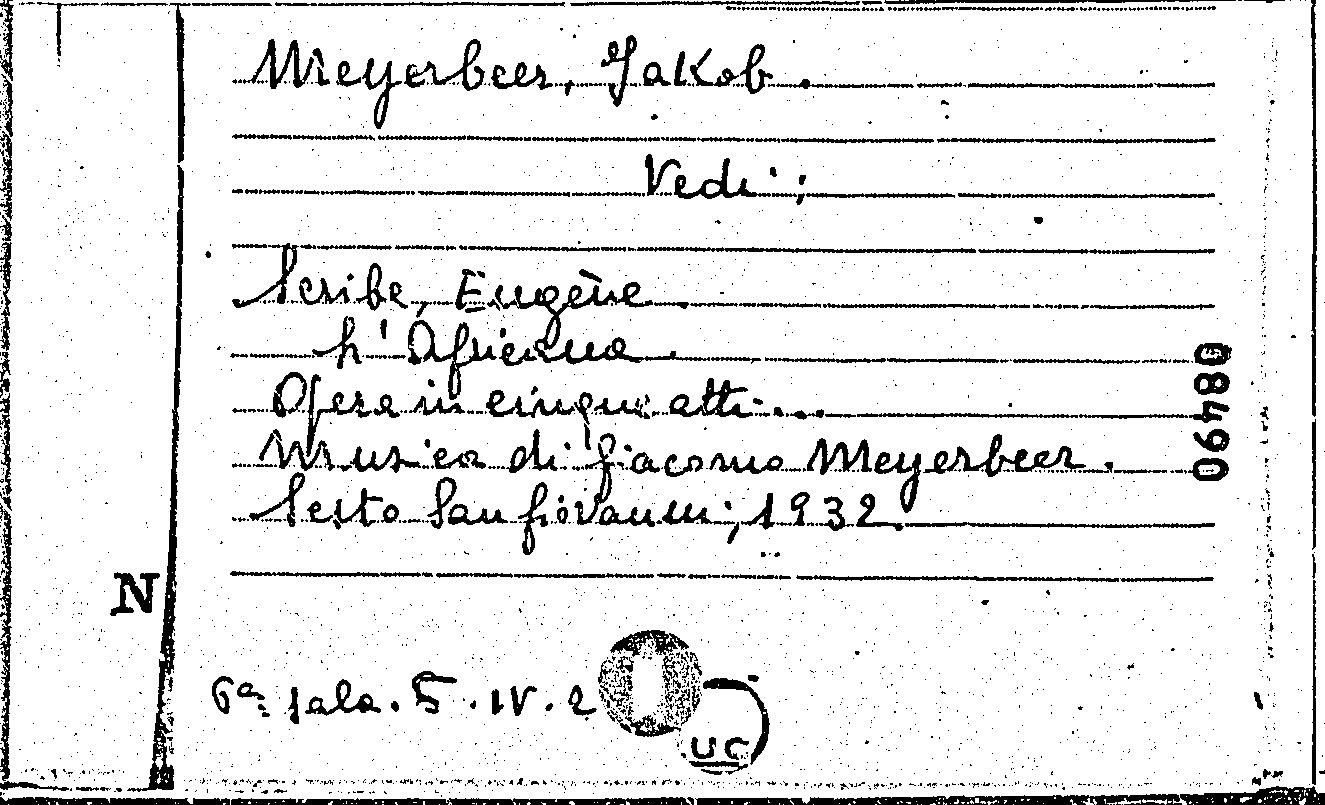 Meyerbeer, Jakob.
Vedi:
Scribe, Eugène.
L'Africana.
Opera in cinque atti...
Musica di Giacomo Meyerbeer.
Sesto San Giovanni, 1932.
08490
N
6a sala. 5. IV. 2
UC